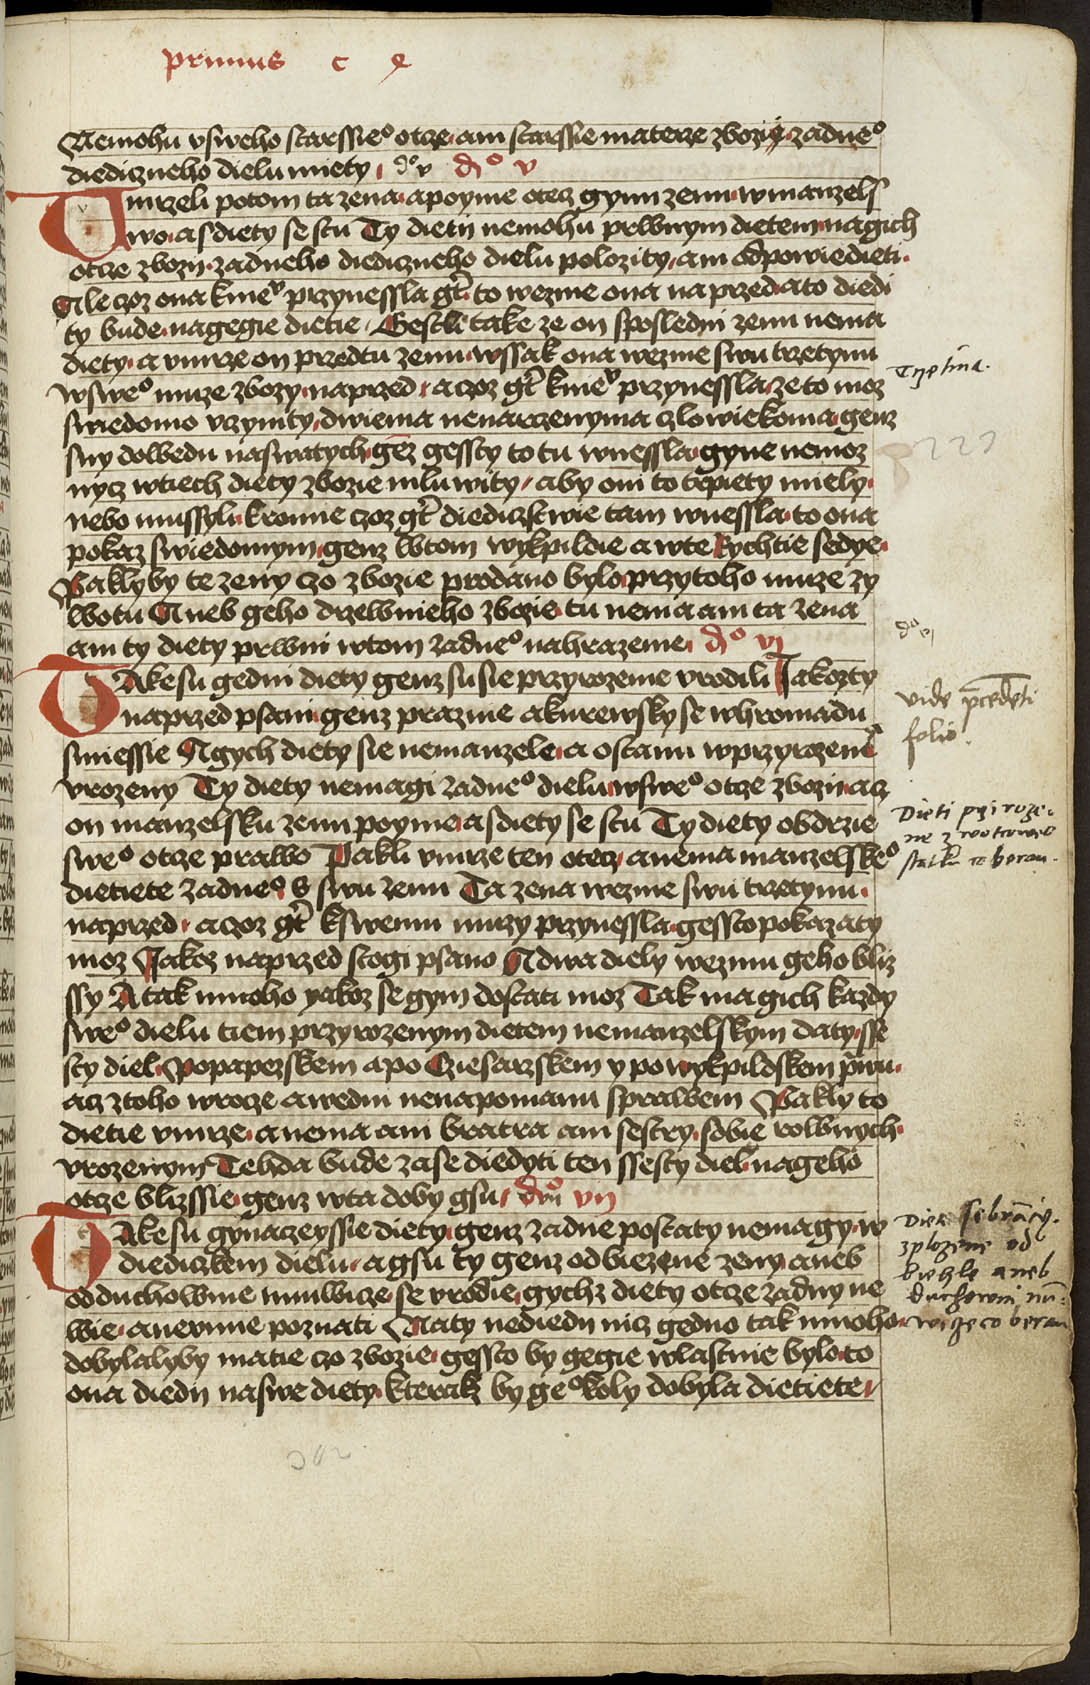 primus c x
Nemohu vsweho starssie⁰ otcze am starssie materze zbozie zadne⁰
diediczneho dielu miety d⁰ v d⁰ v
Umrzeli potom ta zena apoyme otecz gynu zenu wmanzels
two as diety se stu Ty dietij nemohu prwnym dietem nagich
otcze zbozij zadneho diediczneho dielu polozity am odpowiedieti
Ale czoz ona kme⁰ przynessla gt to wezme ona naprzed ato diedi
ty bude nagegie dietie Gestli take ze on sposledni zenu nema
diety a vmrze on przedtu zenu wssak ona wezme swu trzetynu
wswe⁰ muze zbozy naprzed aczoz gt kmie⁰ przynessla zeto moz
swiedomo vczynity dwiema nenarczenyma czlowiekoma genz
suy dowedu naswatych gez gessty to tu wnessla gyne nemoz
nycz wtiech diety zbozie mluwity aby oni to trpiety miely
nebo mussyli kromie czoz gt diediczstwie tam wnessla to ona
pokaz swiedomym genz wtom wykpildie awte rychtie sedye
Paklyby te zeny czo zbozie prodano bylo przytoho muze zy
wotu Aneb geho drzewnieho zbozie tu nema am ta zena
am ty diety prwni wtom zadne⁰ nahrazenie d⁰ vj
TAke su gedni diety genz su sie przyrozenie vrodili Jakozty
naprzed psani genz praznie akurewsky se whromadu
smiessie Agych diety sie nemanzele a ostanu wprzyrozeni
vrozeny Ty diety nemagi zadne⁰ dielu wswe⁰ otcze zbozij acz
on manzelsku zenu poyme as diety se stu Ty diety obdrzie
swe⁰ otcze prawo Pakli vmrze ten otecz anema manzelske⁰
dietiete zadne⁰ S swu zenu Ta zena wezme swu trzetynu
naprzed aczoz gt kswemu muzy przynessla gessto pokazaty
moz Jakoz naprzed stogi psano Adwa diely wezmu geho bliz
ssy A tak mnoho yakoz se gym dostati moz Tak ma gich kazdy
swe⁰ dielu tiem przyrozenym dietem nemanzelskym daty sse
sty diel Popapezskem apo Cziesarzskem y po wykpildskem prwu
acz ztoho wrocze awedni nenapomanu sprawem Pakly to
dietie vmrze anema am bratra am sestry sobie rownych
vrozenym Tehda bude zase diedyti ten ssesty diel nageho
otcze blizssie genz wta doby gsu d⁰ vij
TAke su gynaczeyssie diety genz zadne postaty nemagy w
diediczkem dielu agsu ty genz odbiezene zeny aneb
odduchowme mniwicze se vrodie gychz diety otcze zadny ne
wie anevmie poznati Naty nediedij nicz gedno tak mnoho
dobylalyby matie czo zbozie gessto by gegie wlastnie bylo to
ona diedij naswe diety kterakz by ge⁰ koly dobyla dietiete
Trzetina.
d⁰ vj
vide precedenti
folio.
Dieti przi roze-
ne z wotcowe⁰
statku co beran.
Dieti sebranczy.
zplozene od
biehle aneb
duchowni mni-
wicze co beran